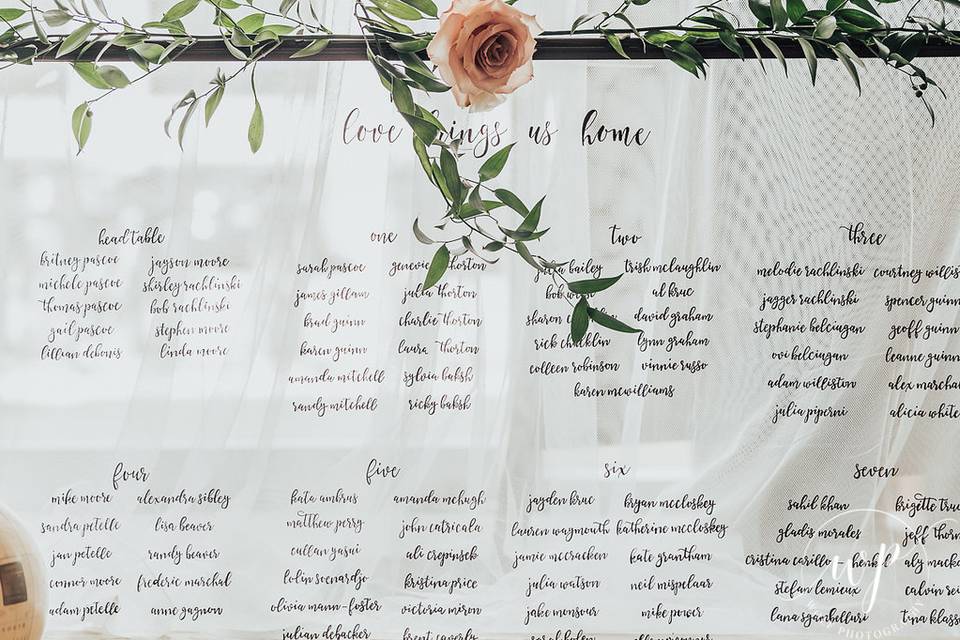 love brings us home
head table
britney pascoe jayson moore
michele pascoe shirley rachlinski
thomas pascoe bob rachlinski
gail pascoe stephen moore
lillian debonis linda moore
one
sarah pascoe genevieve thorton
james gillam julia thorton
brad guinn charlie thorton
karen guinn laura thorton
amanda mitchell sylvia baksh
randy mitchell ricky baksh
two
julia bailey trish mclaughlin
bob al kruc
sharon david graham
rick chicklin lynn graham
colleen robinson vinnie russo
karen mcwilliams
three
melodie rachlinski courtney willis
jagger rachlinski spencer guinn
stephanie belciugan geoff guinn
ovi belciugan leanne guinn
adam williston alex marchal
julia piperni alicia white
four
mike moore alexandra sibley
sandra petelle lisa beaver
jan petelle randy beaver
connor moore frederic marchal
adam petelle anne gagnon
five
kata ambrus amanda mchugh
matthew perry john catricala
cullan yasui ali crepinsek
lolin socnardjo kristina price
olivia mann-foster victoria miron
julian debacker brent caverly
six
jayden kruc bryan mccloskey
lauren waymouth katherine mccloskey
jamie mccracken kate grantham
julia watson neil mispelaar
jake monsour mike power
seven
sahil khan brigette true
gladis morales jeff thorn
cristina carillo henkel aly mack
stefan lemieux calvin rei
lana sgambelluri tina klass
wp
PHOTOGRAPHY